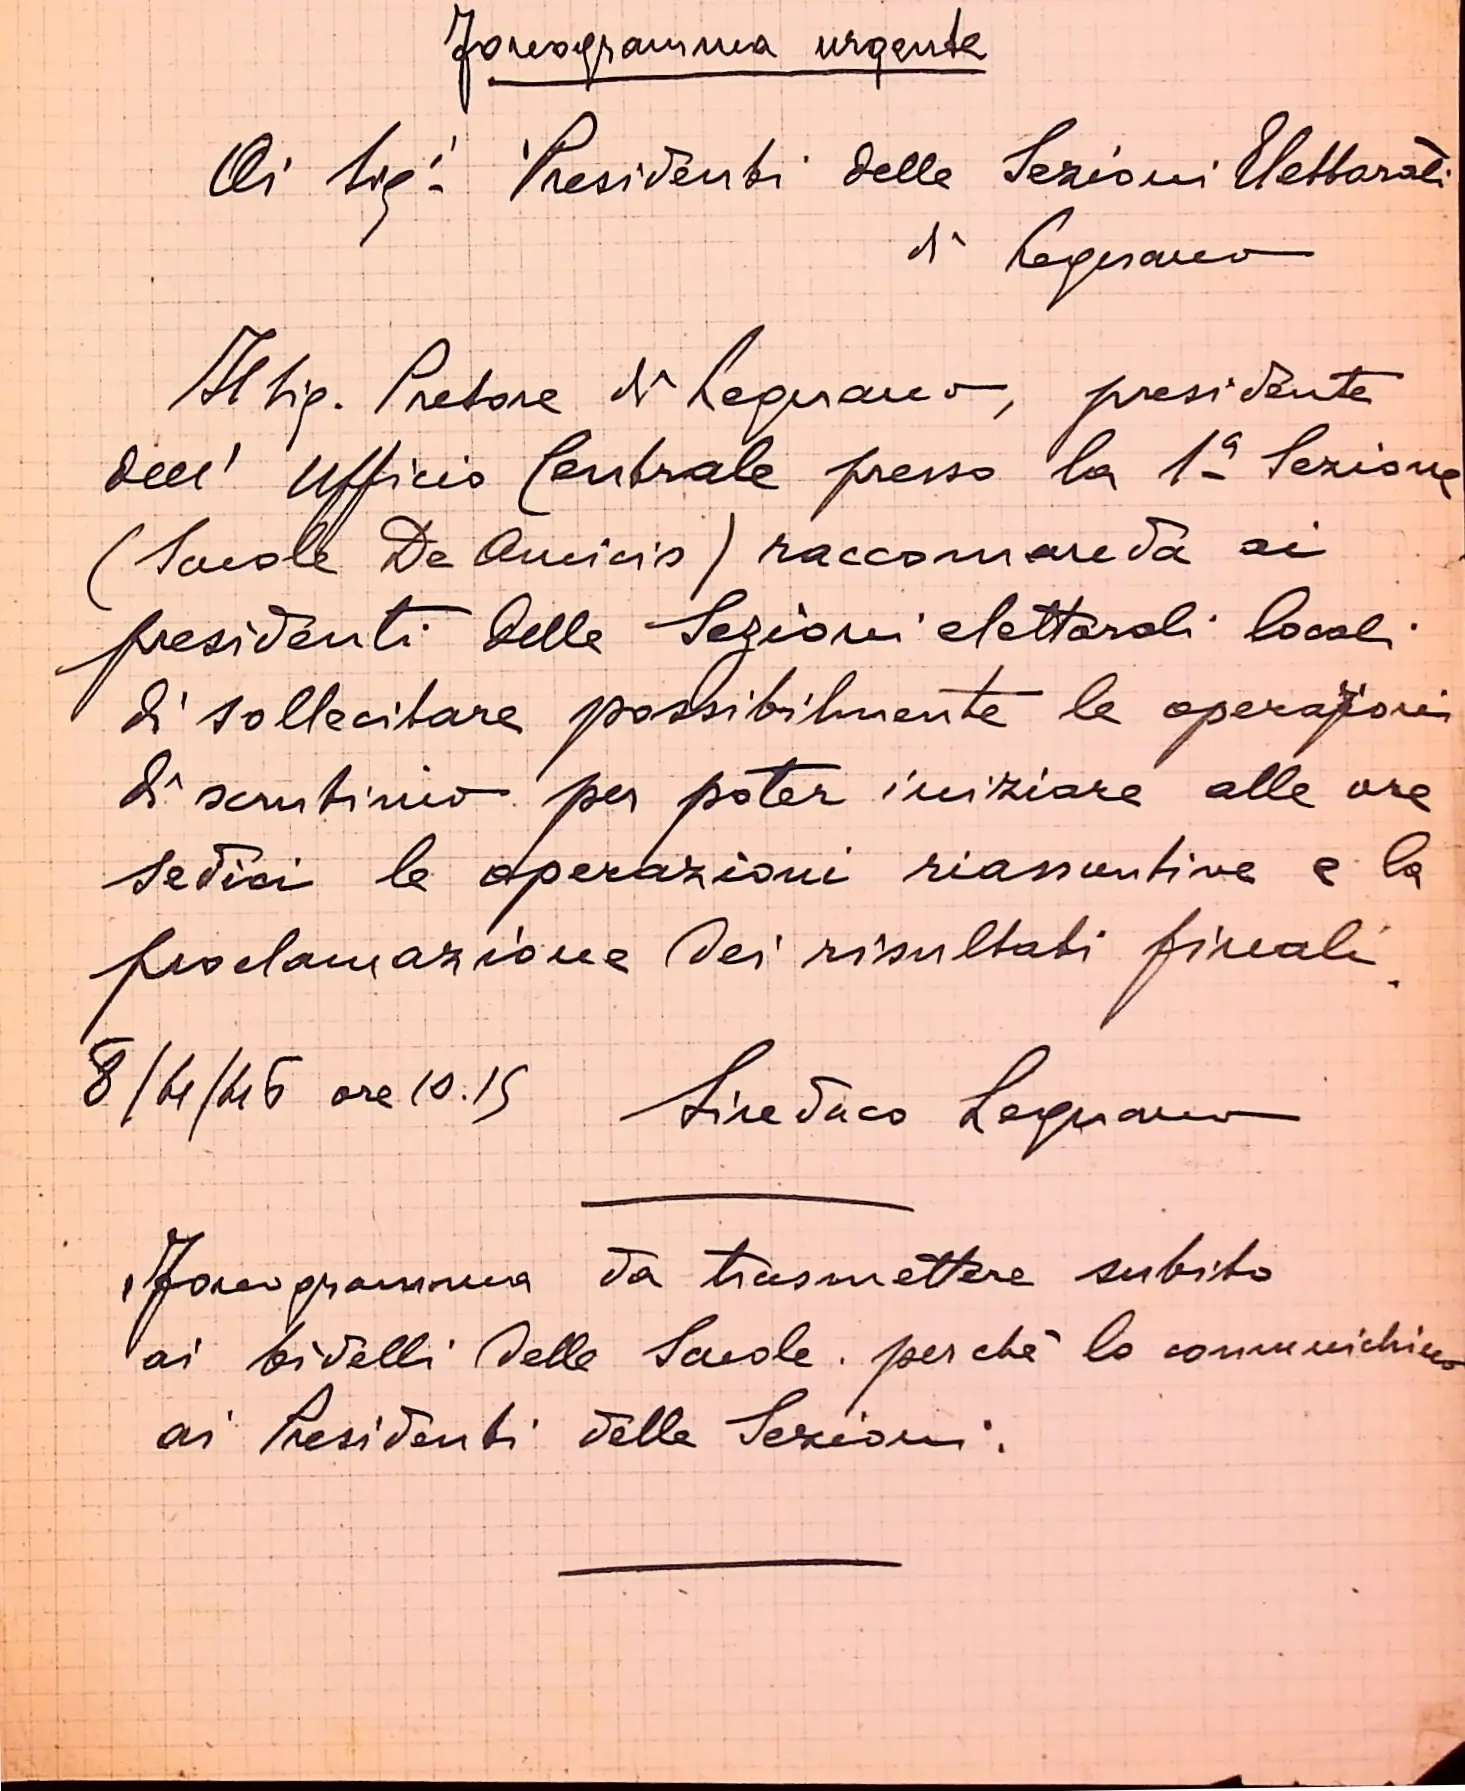 Fonogramma urgente
Ai Sig.i Presidenti delle Sezioni Elettorali
di Legnano
Il Sig. Pretore di Legnano, presidente
dell' Ufficio Centrale presso la 1ª Sezione
(Scuole De Amicis) raccomanda ai
presidenti delle Sezioni elettorali locali
di sollecitare possibilmente le operazioni
di scrutinio per poter iniziare alle ore
sedici le operazioni riassuntive e la
proclamazione dei risultati finali.
8/4/46 ore 10.15 Sindaco Legnano
Fonogramma da trasmettere subito
ai bidelli delle Scuole perchè lo comunichino
ai Presidenti delle Sezioni.